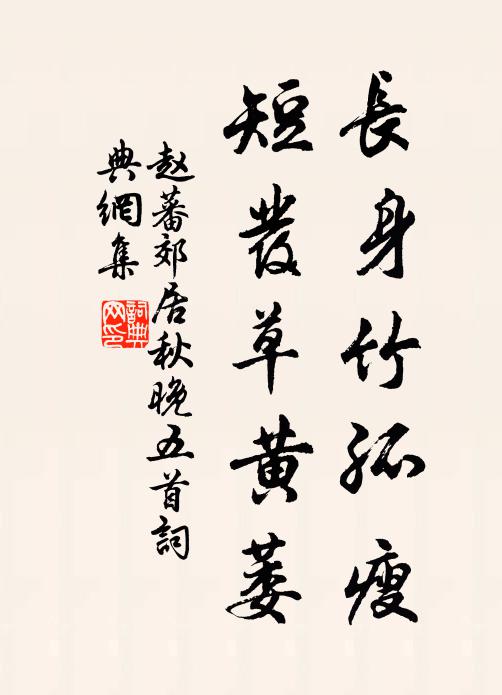 長身竹孤瘦
短發草黃萎
赵蕃郊居秋晚五首詞
典網集
詞典
网印